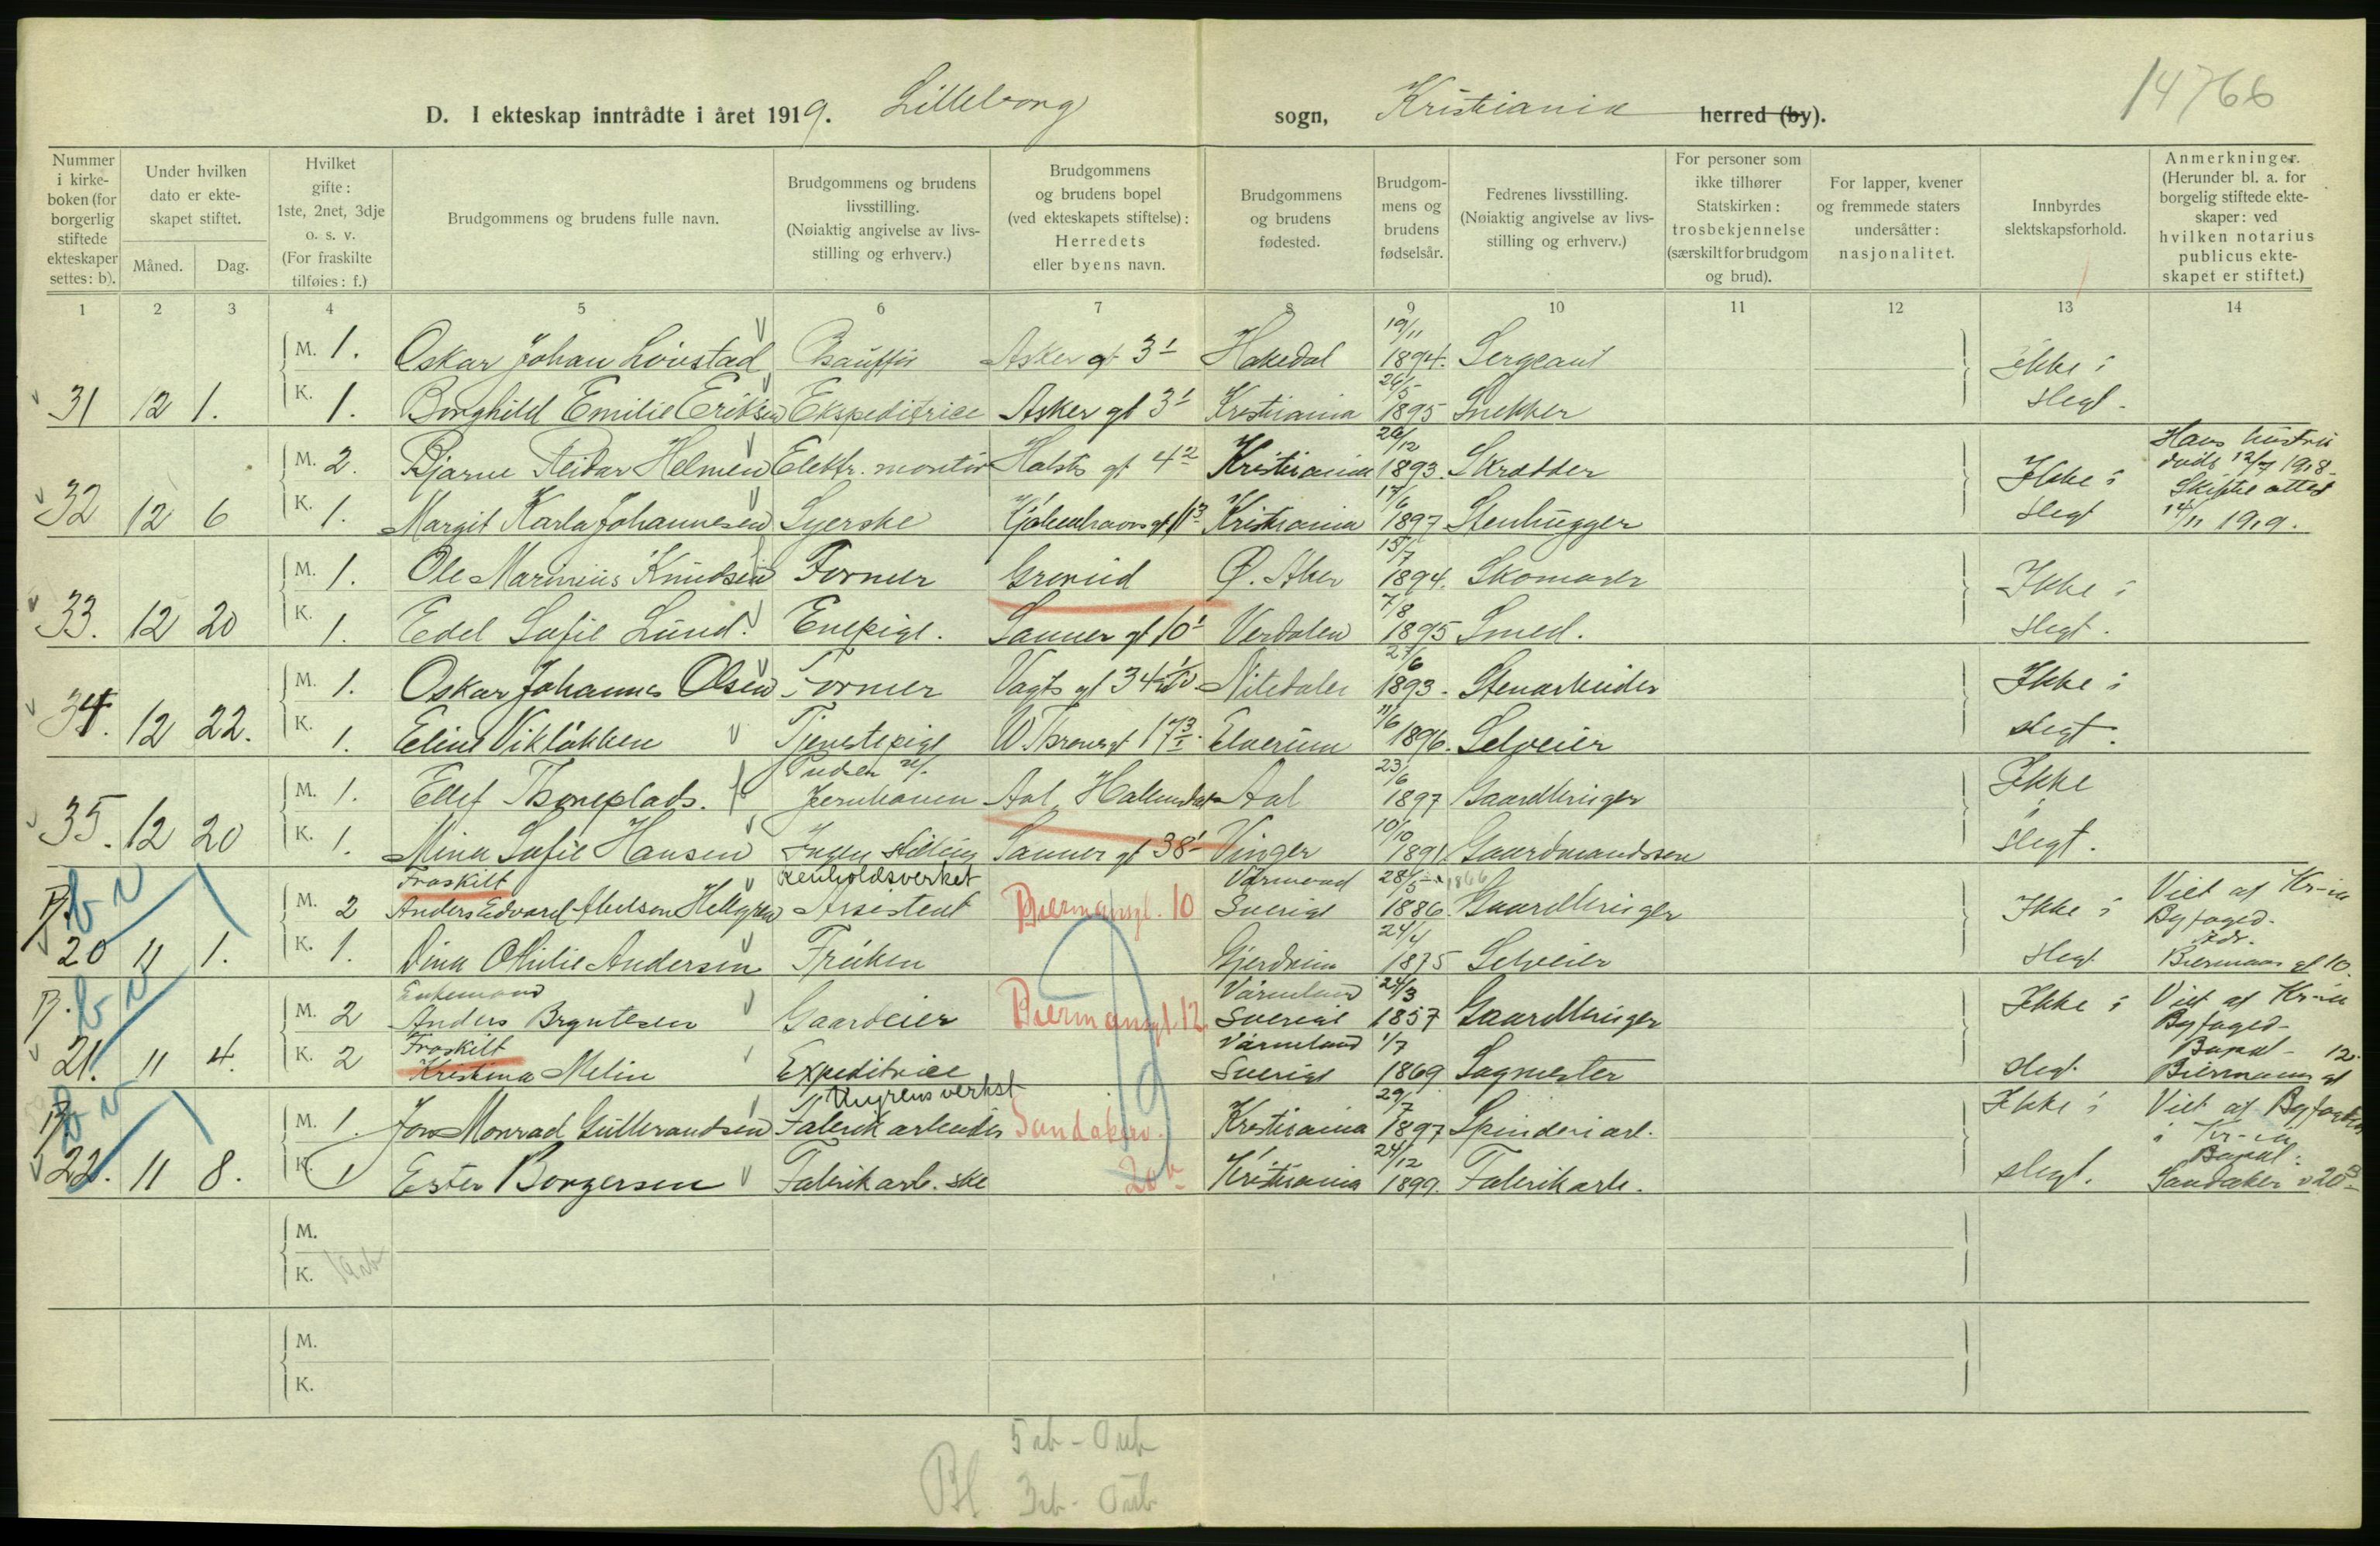 14766
D. I ekteskap inntrådte i året 1919. Lilleborg sogn, Kristiania herred (by).
Nummer i kirkeboken (for borgerlig stiftede ekteskaper settes: b).
Under hvilken dato er ekteskapet stiftet.
Måned. Dag.
Hvilket gifte: 1ste, 2net, 3dje o. s. v. (For fraskilte tilføies: f.)
Brudgommens og brudens fulle navn.
Brudgommens og brudens livsstilling. (Nøiaktig angivelse av livsstilling og erhverv.)
Brudgommens og brudens bopel (ved ekteskapets stiftelse): Herredets eller byens navn.
Brudgommens og brudens fødested.
Brudgommens og brudens fødselsår.
Fedrenes livsstilling. (Nøiaktig angivelse av livsstilling og erhverv.)
For personer som ikke tilhører Statskirken: trosbekjennelse (særskilt for brudgom og brud).
For lapper, kvener og fremmede staters undersåtter: nasjonalitet.
Innbyrdes slektskapsforhold.
Anmerkninger. (Herunder bl. a. for borgelig stiftede ekteskaper: ved hvilken notarius publicus ekteskapet er stiftet.)
1 2 3 4 5 6 7 8 9 10 11 12 13 14
M. 1. Oskar Johan Lövstad Chauffør Asker gt 3 1 Hakedal 19/11 1894. Sergeant Ikke i
31 12 1. K. 1. Borghild Emilie Eriksen Ekspeditrice Asker gt 3 1 Kristiania 26/5 1895 Snekker slegt.
M. 2. Bjarne Reidar Helmen Elektr. montör Holsts gt 4 2 Kristiania 26/12 1893. Skrædder Ikke i Hans hustru døde 12/7 1918. Skifte attest
32 12 6 K. 1. Margit Karla Johannesen Syerske Kjøbenhavn gt 11 3 Kristiania 17/6 1897 Stenhugger slegt 14/11 1919.
M. 1. Ole Marinius Knudsen Former Grorud Ø. Aker 15/7 1894. Skomager Ikke i
33. 12 20 K. 1. Edel Sofie Lund. Enepige. Sanner gt 10 1 Verdalen 7/8 1895 Smed. slegt.
M. 1. Oskar Johannes Olsen Former Vogts gt 34 Nitedalen 27/6 1893. Stenarbeider Ikke i
34. 12 22. K. 1. Eline Vikløkken Tjenestepige W. Thranesgt 17 3 Elverum 11/6 1896. Selveier slegt.
M. 1. Ellef Thoneplads. Pudser v/. Jernbanen Aal, Hallingdal Aal 23/6 1897 Gaardbruger Ikke
35. 12 20 K. 1. Mina Sofie Hansen Ingen stilling Sanner gt 38 1 Vinger 10/10 1891 Gaardmandssøn slegt.
B. b v M. 2 Fraskilt Anders Edvard Abelson Hellgren Renholdsverket Assistent Biermansgt. 10 Värmland Sverige 28/5 1866 1886. Gaardbruger Ikke i Viet af Kr-ia Byfoged.
20 11 1. K. 1. Dina Othilie Andersen Frøken Gjerdrum 24/4 1875 Selveier slegt Adr. Biermans gt 10.
B. b v M. 2 Enkemand Anders Bryntesen Gaardeier Biermansgt. 12 Värmland Sverige 24/3 1857 Gaardbruger Ikke i Viet af Kr-ia Byfoged.
21. 11 4. K. 2 Fraskilt Kristina Melin Expeditrice Värmland Sverige 1/7 1869 Sagmester slegt. Bopæl - 12. Biermanns gt
B. b v M. 1. Jon Monrad Gulbrandsen Myrens verkst Fabrik arbeider Sandakerv. Kristiania 29/7 1897 Spinderi arb. Ikke i Viet af Byfogden i Kr-ia
22. 11 8. K. 1 Ester Borgersen Fabrik arb. ske 20 b Kristiania 24/12 1899. Fabrik arb. slegt. Bopæl: Sandaker v 20 B
M.
K.
M.
K.
5 ub - 0 ub
Bl. 3 ub - 0 ub